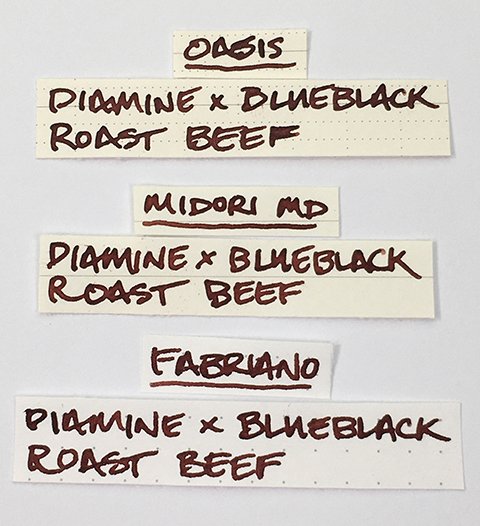 OASIS
DIAMINE x BLUEBLACK
ROAST BEEF
MIDORI MD
DIAMINE x BLUEBLACK
ROAST BEEF
FABRIANO
DIAMINE x BLUEBLACK
ROAST BEEF